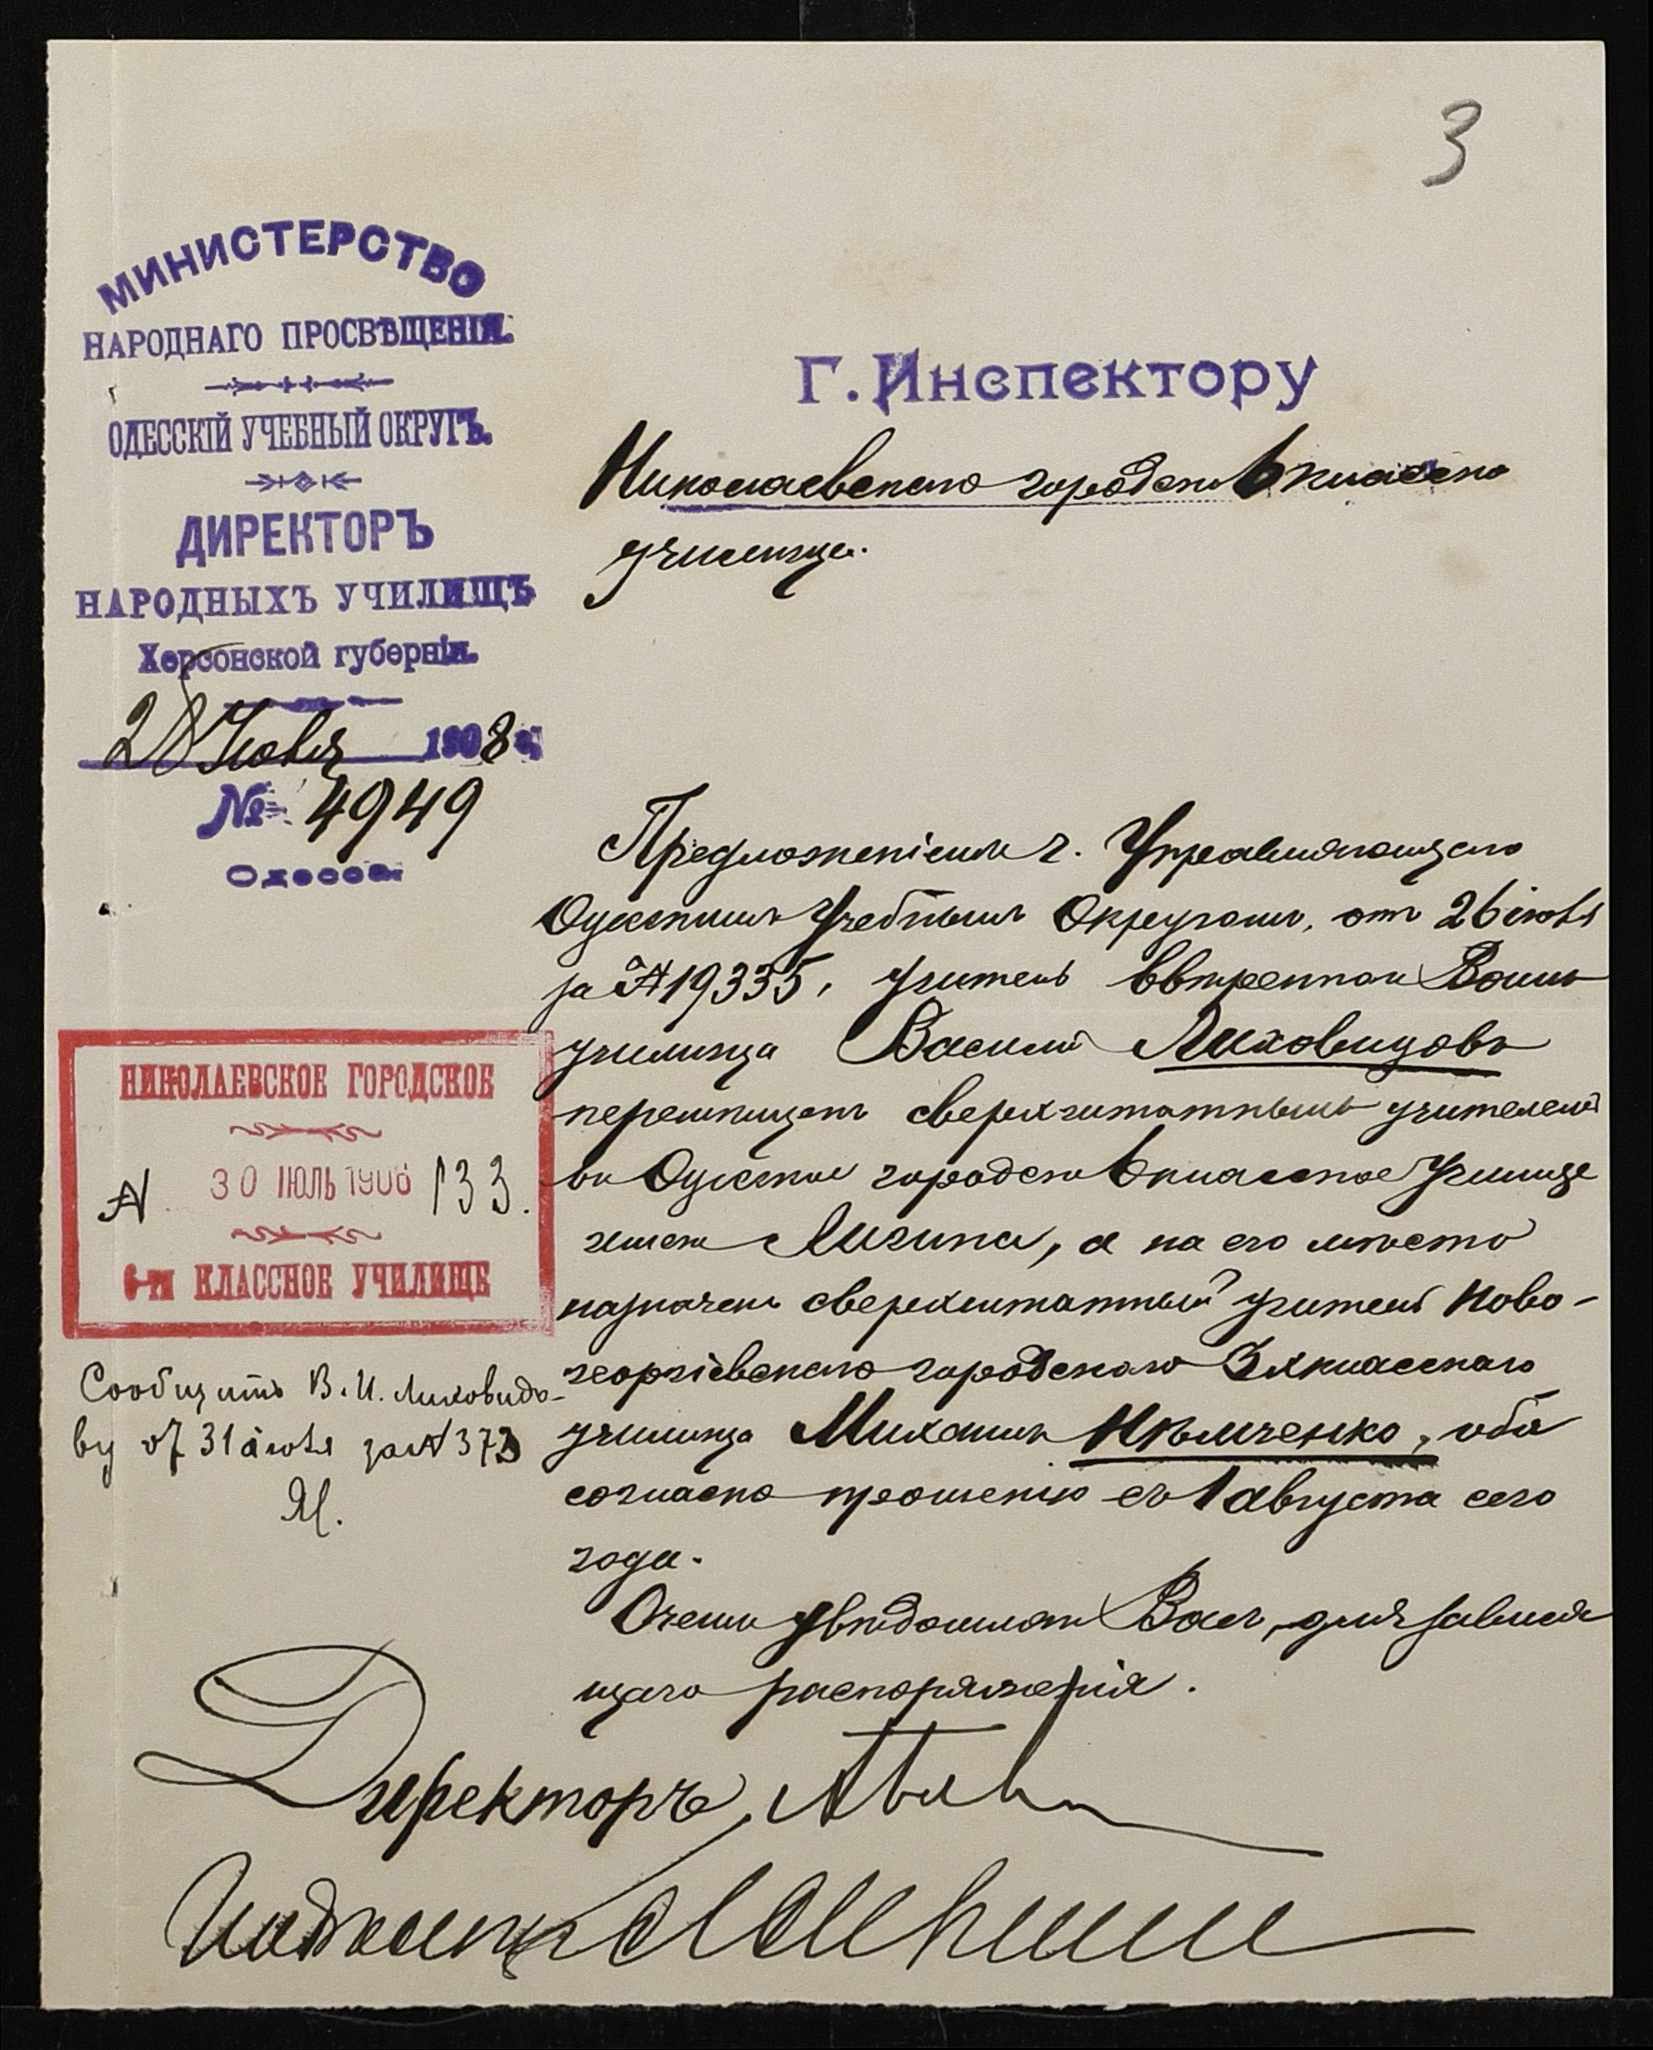 3
МИНИСТЕРСТВО
НАРОДНАГО ПРОСВѢЩЕНІЯ.
ОДЕССКІЙ УЧЕБНЫЙ ОКРУГЪ.
ДИРЕКТОРЪ
НАРОДНЫХЪ УЧИЛИЩЪ
Херсонской губерніи.
28 Іюля 1908 г.
№ 4949
Одесса.
Г. Инспектору
Николаевскаго городск 6 класснаго
училища.
Предложеніемъ г. Управляющаго
Одесскимъ Учебнымъ Округомъ, отъ 26 іюля
за № 19335, учитель ввѣреннаго Вамъ
училища Василій Лиховидовъ
перемѣщенъ сверхштатнымъ учителемъ
въ Одесское городское 6 классное Училище
имени Лигина, а на его мѣсто
назначенъ сверхштатный учитель Ново-
георгіевскаго городского 3хкласснаго
училища Михаилъ Нѣмченко, оба
согласно прошенію съ 1 августа сего
года.
О чемъ увѣдомляю Васъ, для зависѧ
щаго распоряженія.
НИКОЛАЕВСКОЕ ГОРОДСКОЕ
№ 30 ІЮЛЬ 1908 133.
6-ти КЛАССНОЕ УЧИЛИЩЕ
Сообщить В. И. Лиховидо-
ву от 31 іюля за № 373
Директоръ